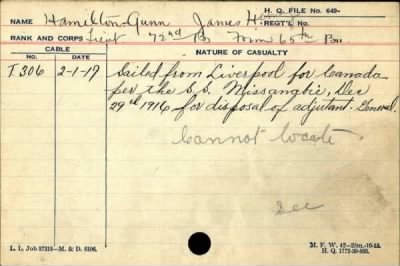 H. Q. FILE No. 649-
NAME Hamilton-Gunn James H. REGT'L No.
RANK AND CORPS Lieut 72nd Bn From 65th Bn
CABLE
No. DATE NATURE OF CASUALTY
T306 2-1-17 Sailed from Liverpool for Canada
per the S.S. Missanabie, Dec
29th 1916 for disposal of adjutant-General.
Cannot locate
L. L. Job 87318-M. & D. 6106.
M. F. W. 42-25m.-10-16.
H. Q. 1772-39-893.